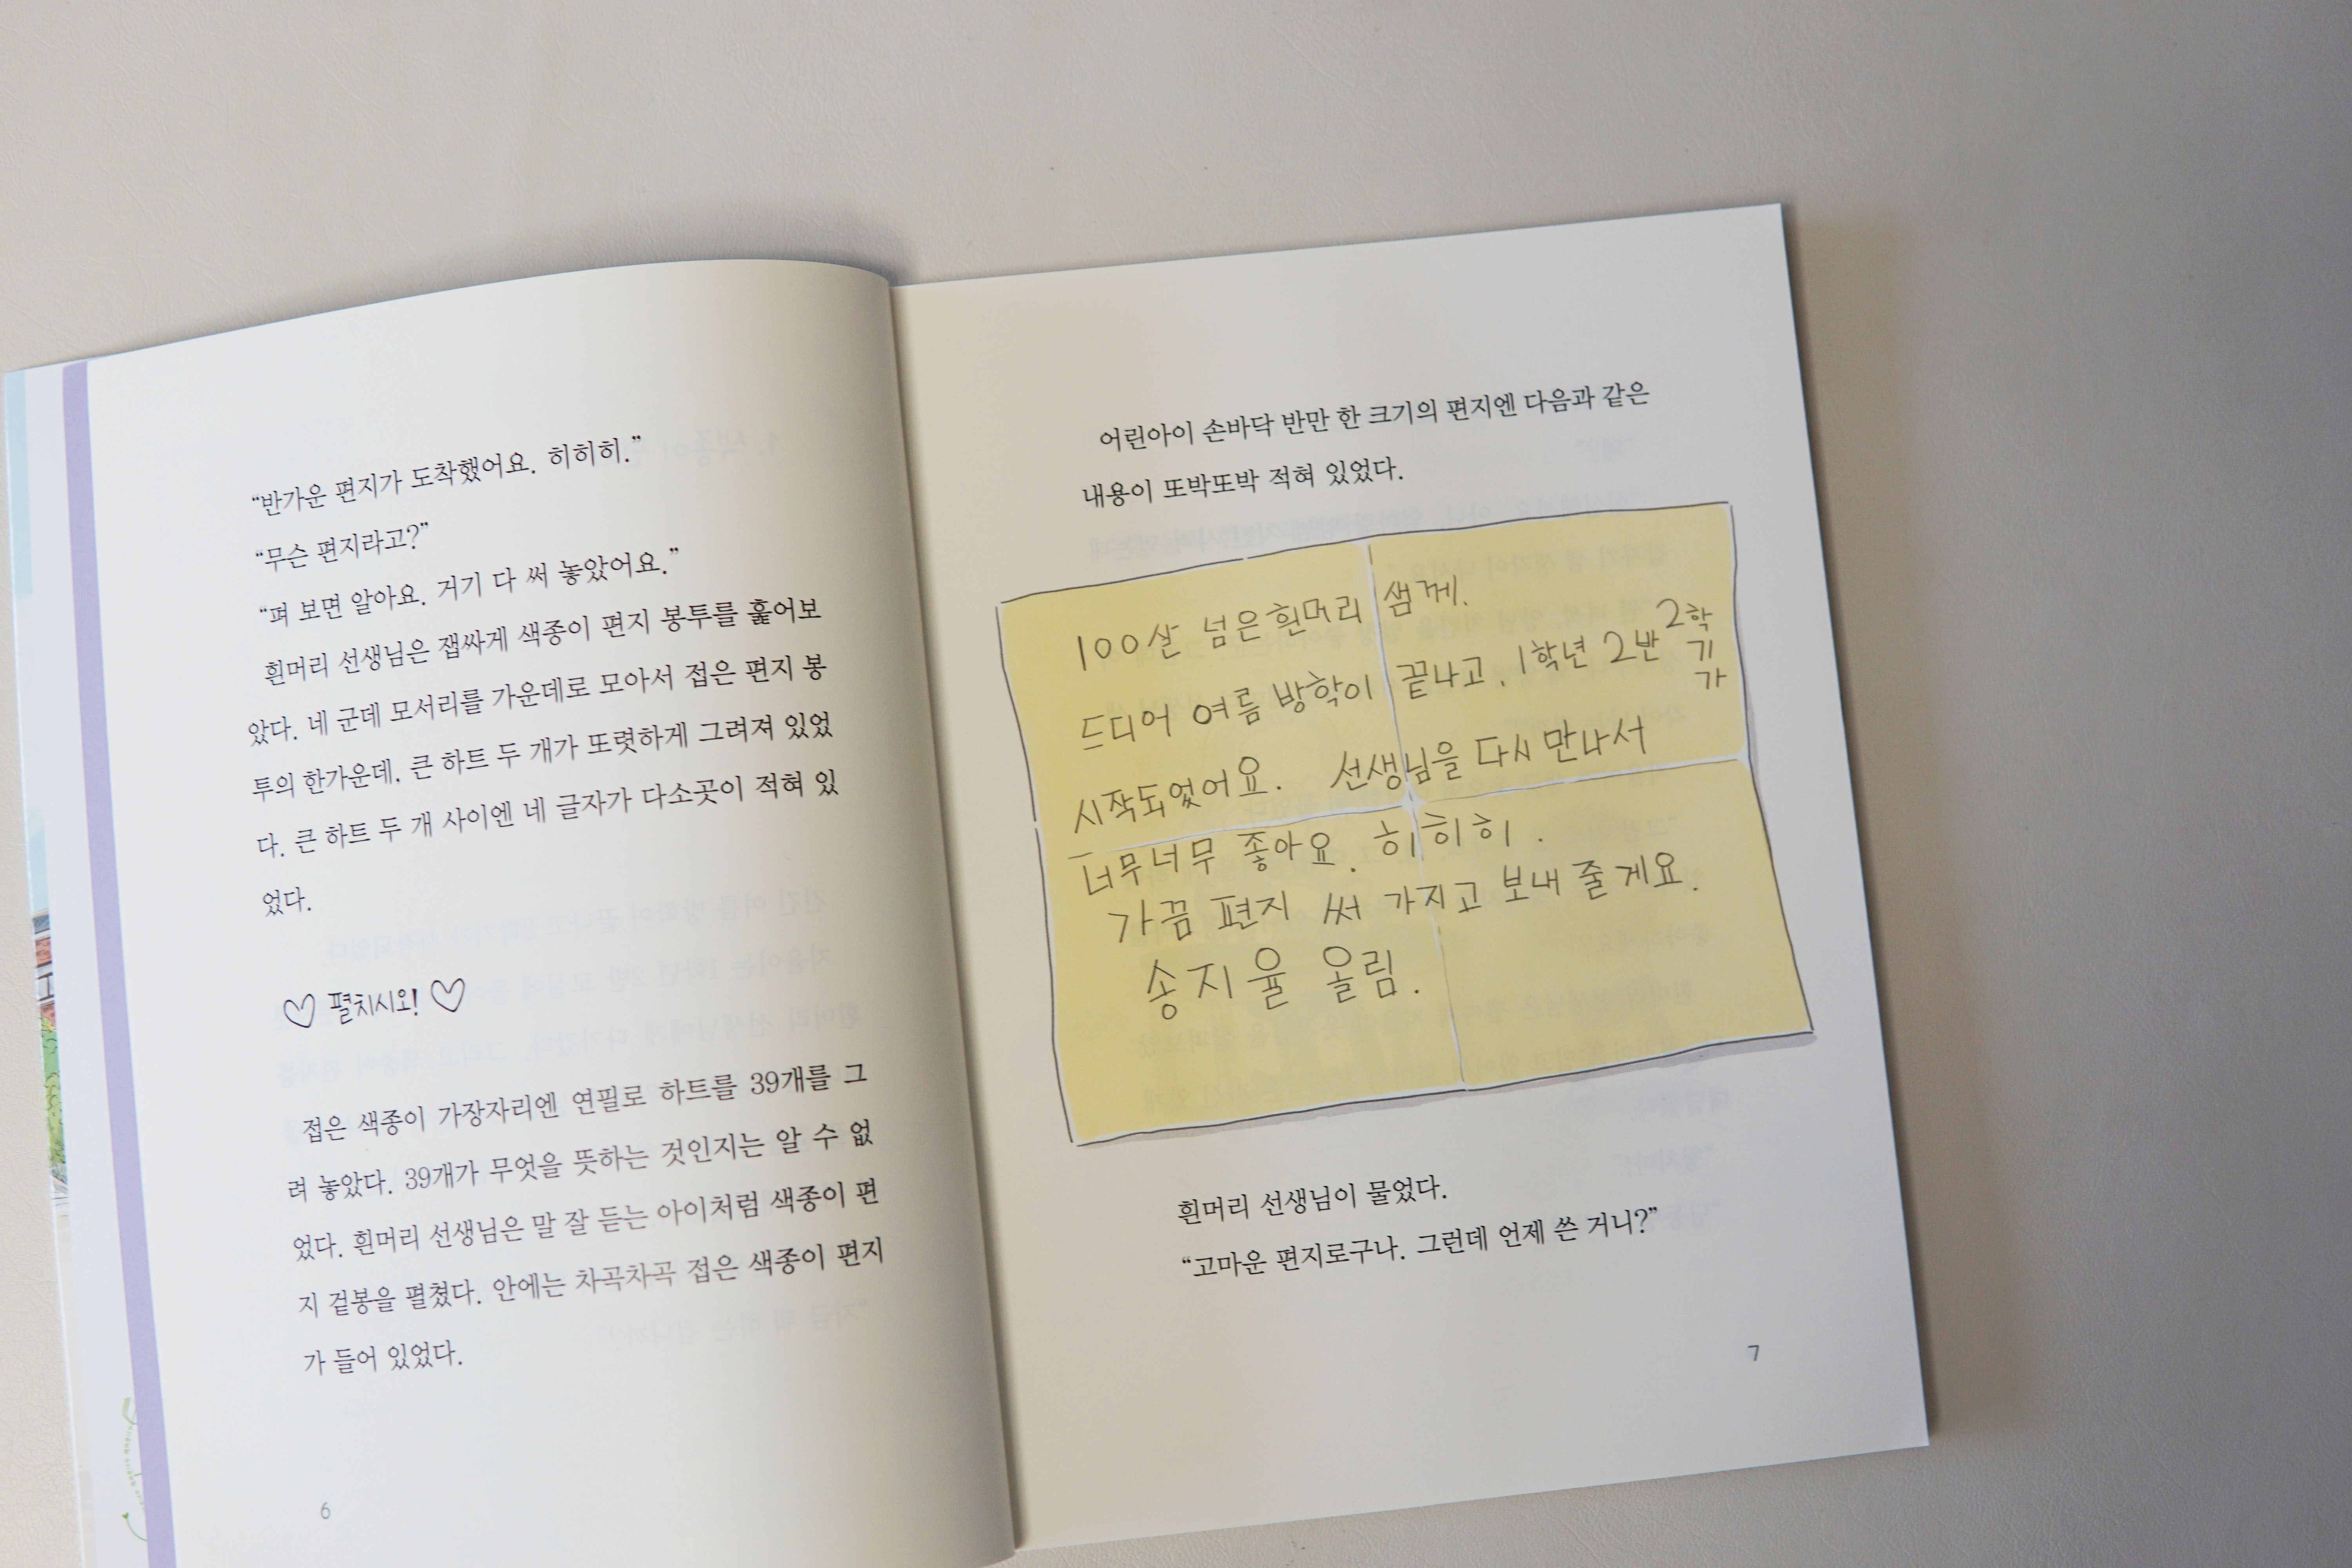 “반가운 편지가 도착했어요. 히히히.”
“무슨 편지라고?”
“펴 보면 알아요. 거기 다 써 놓았어요.”
흰머리 선생님은 잽싸게 색종이 편지 봉투를 훑어보
았다. 네 군데 모서리를 가운데로 모아서 접은 편지 봉
투의 한가운데, 큰 하트 두 개가 또렷하게 그려져 있었
다. 큰 하트 두 개 사이엔 네 글자가 다소곳이 적혀 있
었다.
♡ 펼치시오! ♡
접은 색종이 가장자리엔 연필로 하트를 39개를 그
려 놓았다. 39개가 무엇을 뜻하는 것인지는 알 수 없
었다. 흰머리 선생님은 말 잘 듣는 아이처럼 색종이 편
지 겉봉을 펼쳤다. 안에는 차곡차곡 접은 색종이 편지
가 들어 있었다.
6
어린아이 손바닥 반만 한 크기의 편지엔 다음과 같은
내용이 또박또박 적혀 있었다.
100살 넘은 흰머리 샘께.
드디어 여름 방학이 끝나고, 1학년 2반 2학
기
가
시작되었어요. 선생님을 다시 만나서
너무너무 좋아요. 히히히.
가끔 편지 써 가지고 보내 줄게요.
송지율 올림.
흰머리 선생님이 물었다.
“고마운 편지로구나. 그런데 언제 쓴 거니?”
7